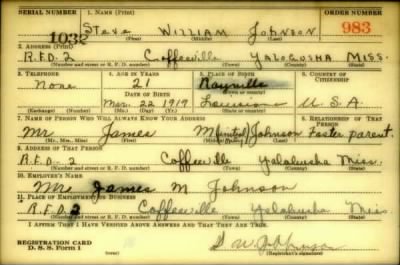 SERIAL NUMBER 1. NAME (Print) ORDER NUMBER
1032 Steve WILLIAM JOHNSON 983
2. ADDRESS (Print)
R.F.D. 2 Coffeeville YALOBUSHA MISS.
3. TELEPHONE 4. AGE IN YEARS 5. PLACE OF BIRTH 6. COUNTRY OF CITIZENSHIP
None 21 Rayville
DATE OF BIRTH
Mar. 22 1919 Louisiana U.S.A.
(Exchange) (Number) (Mo.) (Day) (Yr.) (State or country)
7. NAME OF PERSON WHO WILL ALWAYS KNOW YOUR ADDRESS 8. RELATIONSHIP OF THAT PERSON
Mr James M Johnson Foster parent.
(Mr., Mrs., Miss) (First) (Middle) (Last)
9. ADDRESS OF THAT PERSON
R.F.D. 2 Coffeeville Yalobusha Miss.
(Number and street or R. F. D. number) (Town) (County) (State)
10. EMPLOYER'S NAME
Mr James M Johnson
11. PLACE OF EMPLOYMENT OR BUSINESS
R.F.D. 2 Coffeeville Yalobusha Miss
(Number and street or R. F. D. number) (Town) (County) (State)
I AFFIRM THAT I HAVE VERIFIED ABOVE ANSWERS AND THAT THEY ARE TRUE.
REGISTRATION CARD
D. S. S. Form 1 S W Johnson
(Registrant's signature)